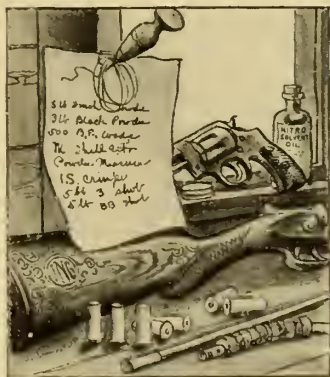 3 lb Black Powder
500 B.P. Wads
Shell
Powder Measure
1 S. Crimper
5 lb 3 shot
5 lb BB shot
NITRO
SOLVENT
OIL